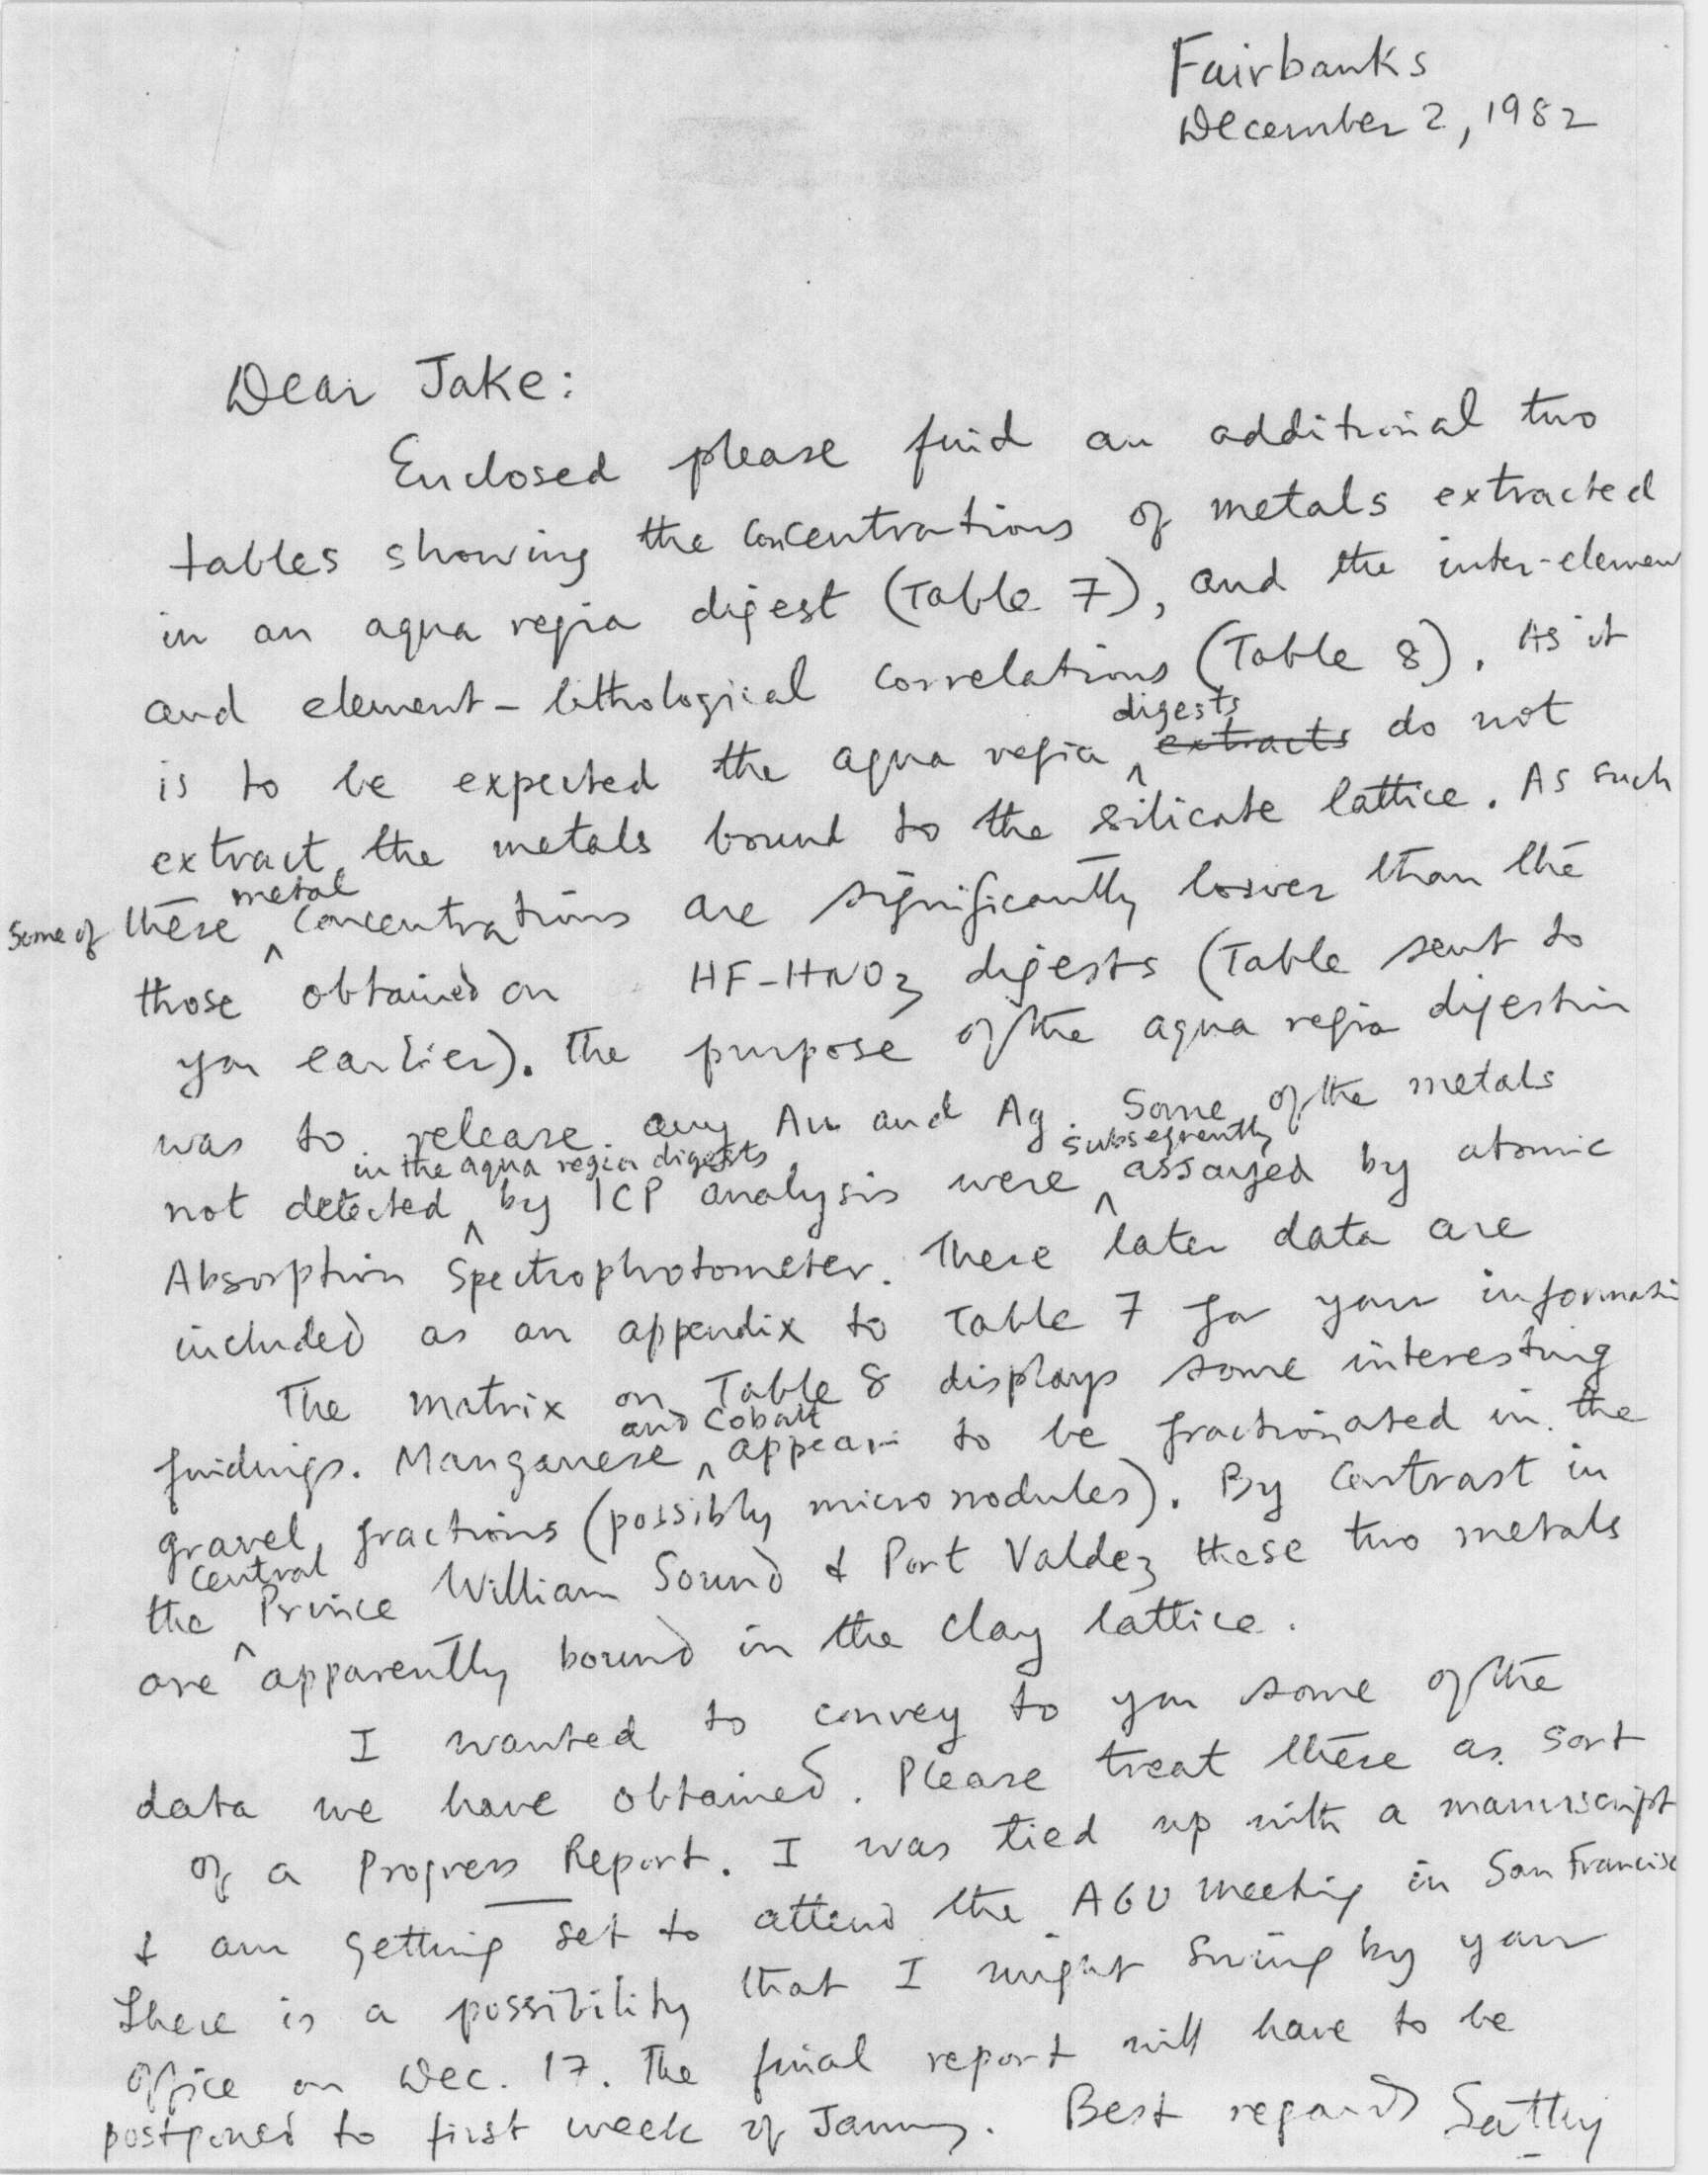 Fairbanks
December 2, 1982
Dear Jake:
Enclosed please find an additional two
tables showing the concentrations of metals extracted
in an aqua regia digest (Table 7), and the inter-elemen
and element-lithological correlations (Table 8). As it
digests
is to be expected the aqua regia ^ extracts do not
extract the metals bound to the silicate lattice. As such
metal
Some of these ^ concentrations are significantly lower than the
those obtained on HF-HNO3 digests (Table sent to
you earlier). The purpose of the aqua regia digestion
was to release any Au and Ag. Some of the metals
in the aqua regia digests subsequently
not detected ^ by ICP analysis were ^ assayed by atomic
Absorption Spectrophotometer. These later data are
included as an appendix to Table 7 for your informati
The matrix on Table 8 displays some interesting
and Cobalt
findings. Manganese ^ appear to be fractionated in the
gravel fractions (possibly micronodules). By contrast in
central
the ^ Prince William Sound & Port Valdez these two metals
are apparently bound in the clay lattice.
I wanted to convey to you some of the
data we have obtained. Please treat these as sort
of a Progress Report. I was tied up with a manuscript
& am getting set to attend the AGU meeting in San Francisc
There is a possibility that I might swing by your
office on Dec. 17. The final report will have to be
postponed to first week of January. Best regards Sathy